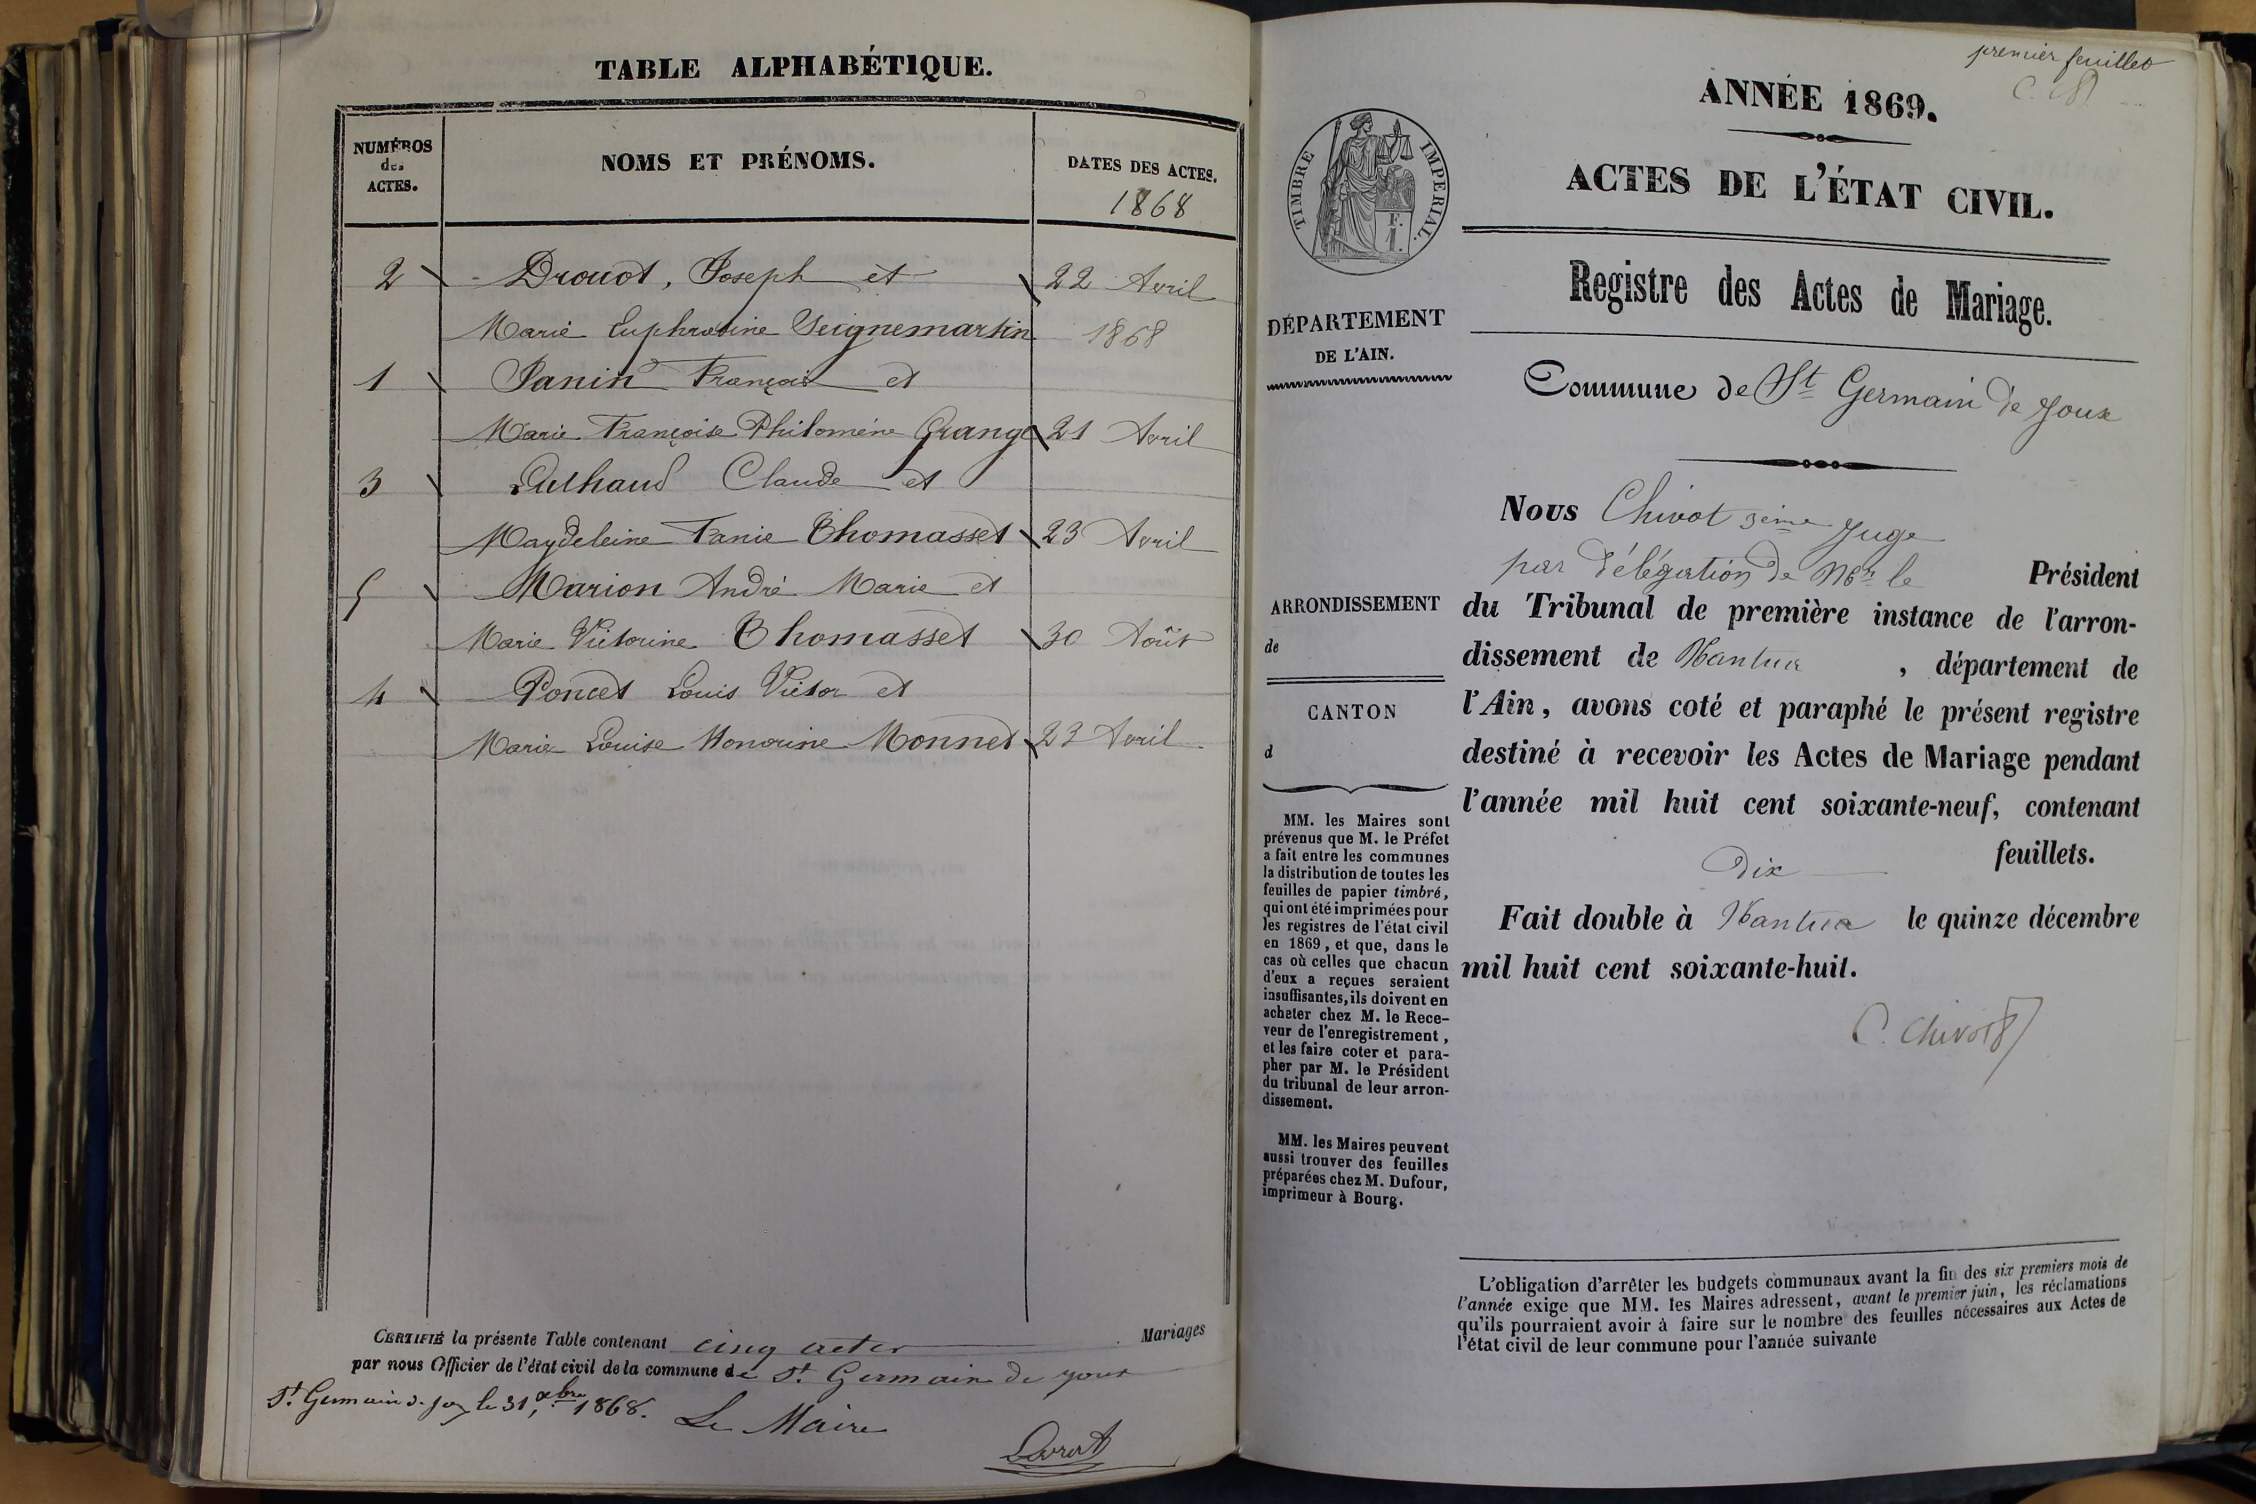 TABLE ALPHABÉTIQUE.
NUMÉROS
des
ACTES.
NOMS ET PRÉNOMS.
DATES DES ACTES.
1868
2 Drouot, Joseph et 22 Avril
Marie Euphrosine Seignemartin 1868
1 Janin François et
Marie Françoise Philomène Grange 21 Avril
3 Claude et
Maydeleine Fanie Thomasset 23 Avril
5 Marion André Marie et
Marie Victorine Thomasset 30 Août
4 Poncet Louis Victor et
Marie Louise Honorine Monnet 23 Avril
CERTIFIÉ la présente Table contenant cinq actes Mariages
par nous Officier de l'état civil de la commune de St. Germain de joux
St. Germain de Joux le 31 xbre 1868.
Le Maire
premier feuillet
ANNÉE 1869.
ACTES DE L'ÉTAT CIVIL.
Registre des Actes de Mariage.
TIMBRE IMPERIAL.
F.
1.
DÉPARTEMENT
DE L'AIN.
Commune de St Germain de Joux
Nous Chivot 3ème Juge
par délégation de Mr le Président
du Tribunal de première instance de l'arron-
dissement de Nantua, département de
l'Ain, avons coté et paraphé le présent registre
destiné à recevoir les Actes de Mariage pendant
l'année mil huit cent soixante-neuf, contenant
Dix feuillets.
Fait double à Nantua le quinze décembre
mil huit cent soixante-huit.
C. Chivot
ARRONDISSEMENT
de
CANTON
d
MM. les Maires sont
prévenus que M. le Préfet
a fait entre les communes
la distribution de toutes les
feuilles de papier timbré,
qui ont été imprimées pour
les registres de l'état civil
en 1869, et que, dans le
cas où celles que chacun
d'eux a reçues seraient
insuffisantes, ils doivent en
acheter chez M. le Rece-
veur de l'enregistrement,
et les faire coter et para-
pher par M. le Président
du tribunal de leur arron-
dissement.
MM. les Maires peuvent
aussi trouver des feuilles
préparées chez M. Dufour,
imprimeur à Bourg.
L'obligation d'arrêter les budgets communaux avant la fin des six premiers mois de
l'année exige que MM. les Maires adressent, avant le premier juin, les réclamations
qu'ils pourraient avoir à faire sur le nombre des feuilles nécessaires aux Actes de
l'état civil de leur commune pour l'année suivante